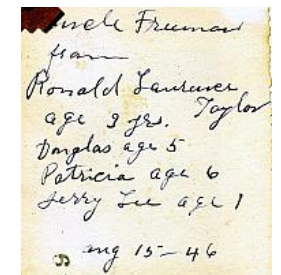 Uncle Freeman
from
Ronald Laurence
age 3 yrs. Taylor
Douglas age 5
Patricia age 6
Jerry Lee age 1
aug 15-46